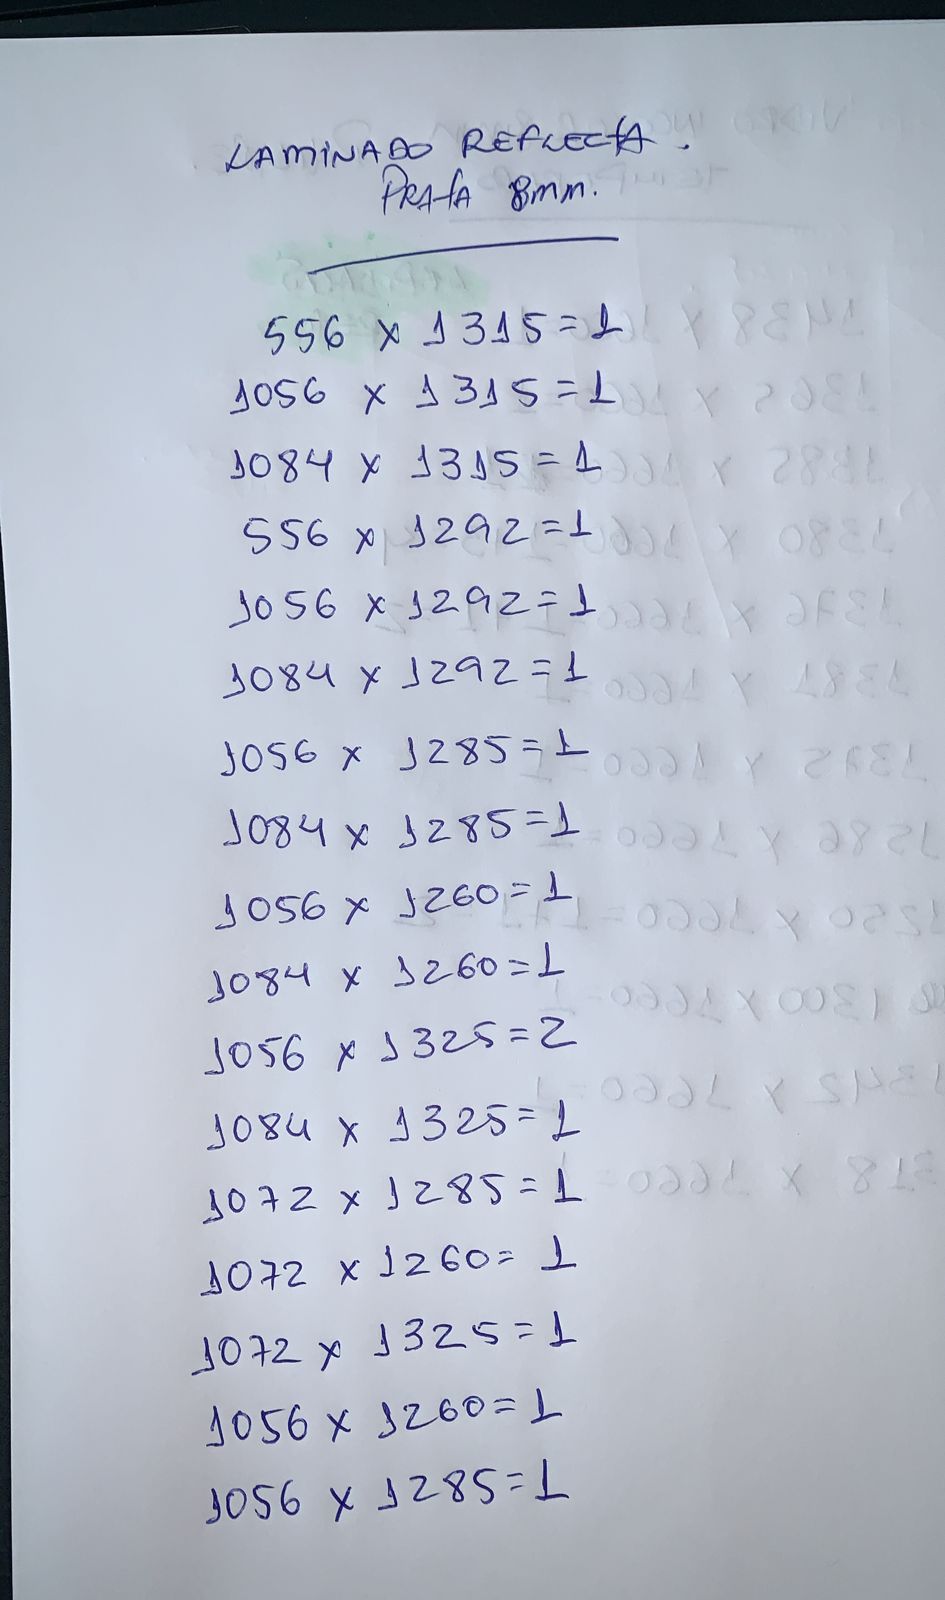 LAMINADO REFLECTA.
PRATA 8mm.
556 x 1315=1
1056 x 1315=1
1084 x 1315=1
556 x 1292=1
1056 x 1292=1
1084 x 1292=1
1056 x 1285=1
1084 x 1285=1
1056 x 1260=1
1084 x 1260=1
1056 x 1325=2
1084 x 1325=1
1072 x 1285=1
1072 x 1260=1
1072 x 1325=1
1056 x 1260=1
1056 x 1285=1